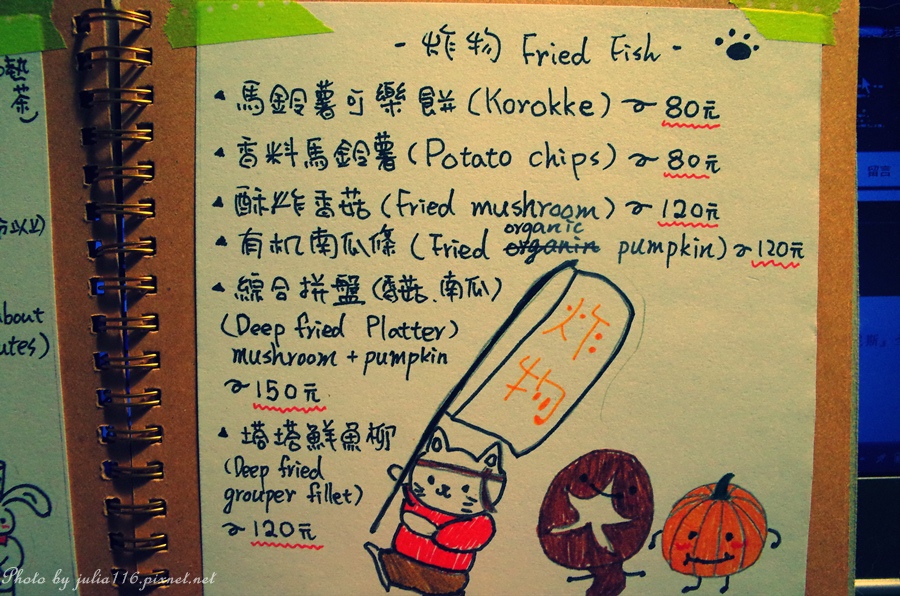 熱
茶)
分以以)
about
utes)
- 炸物 Fried Fish -
馬鈴薯可樂餅 (Korokke) ~ 80元
香料馬鈴薯 (Potato chips) ~ 80元
酥炸香菇 (Fried mushroom) ~ 120元
organic
有机南瓜條 (Fried organin pumpkin) ~ 120元
綜合拼盤 (香菇、南瓜)
(Deep fried Platter)
mushroom + pumpkin
~ 150元
塔塔鮮魚柳
(Deep fried
grouper fillet)
~ 120元
炸
物
留言
Photo by julia116.pixnet.net